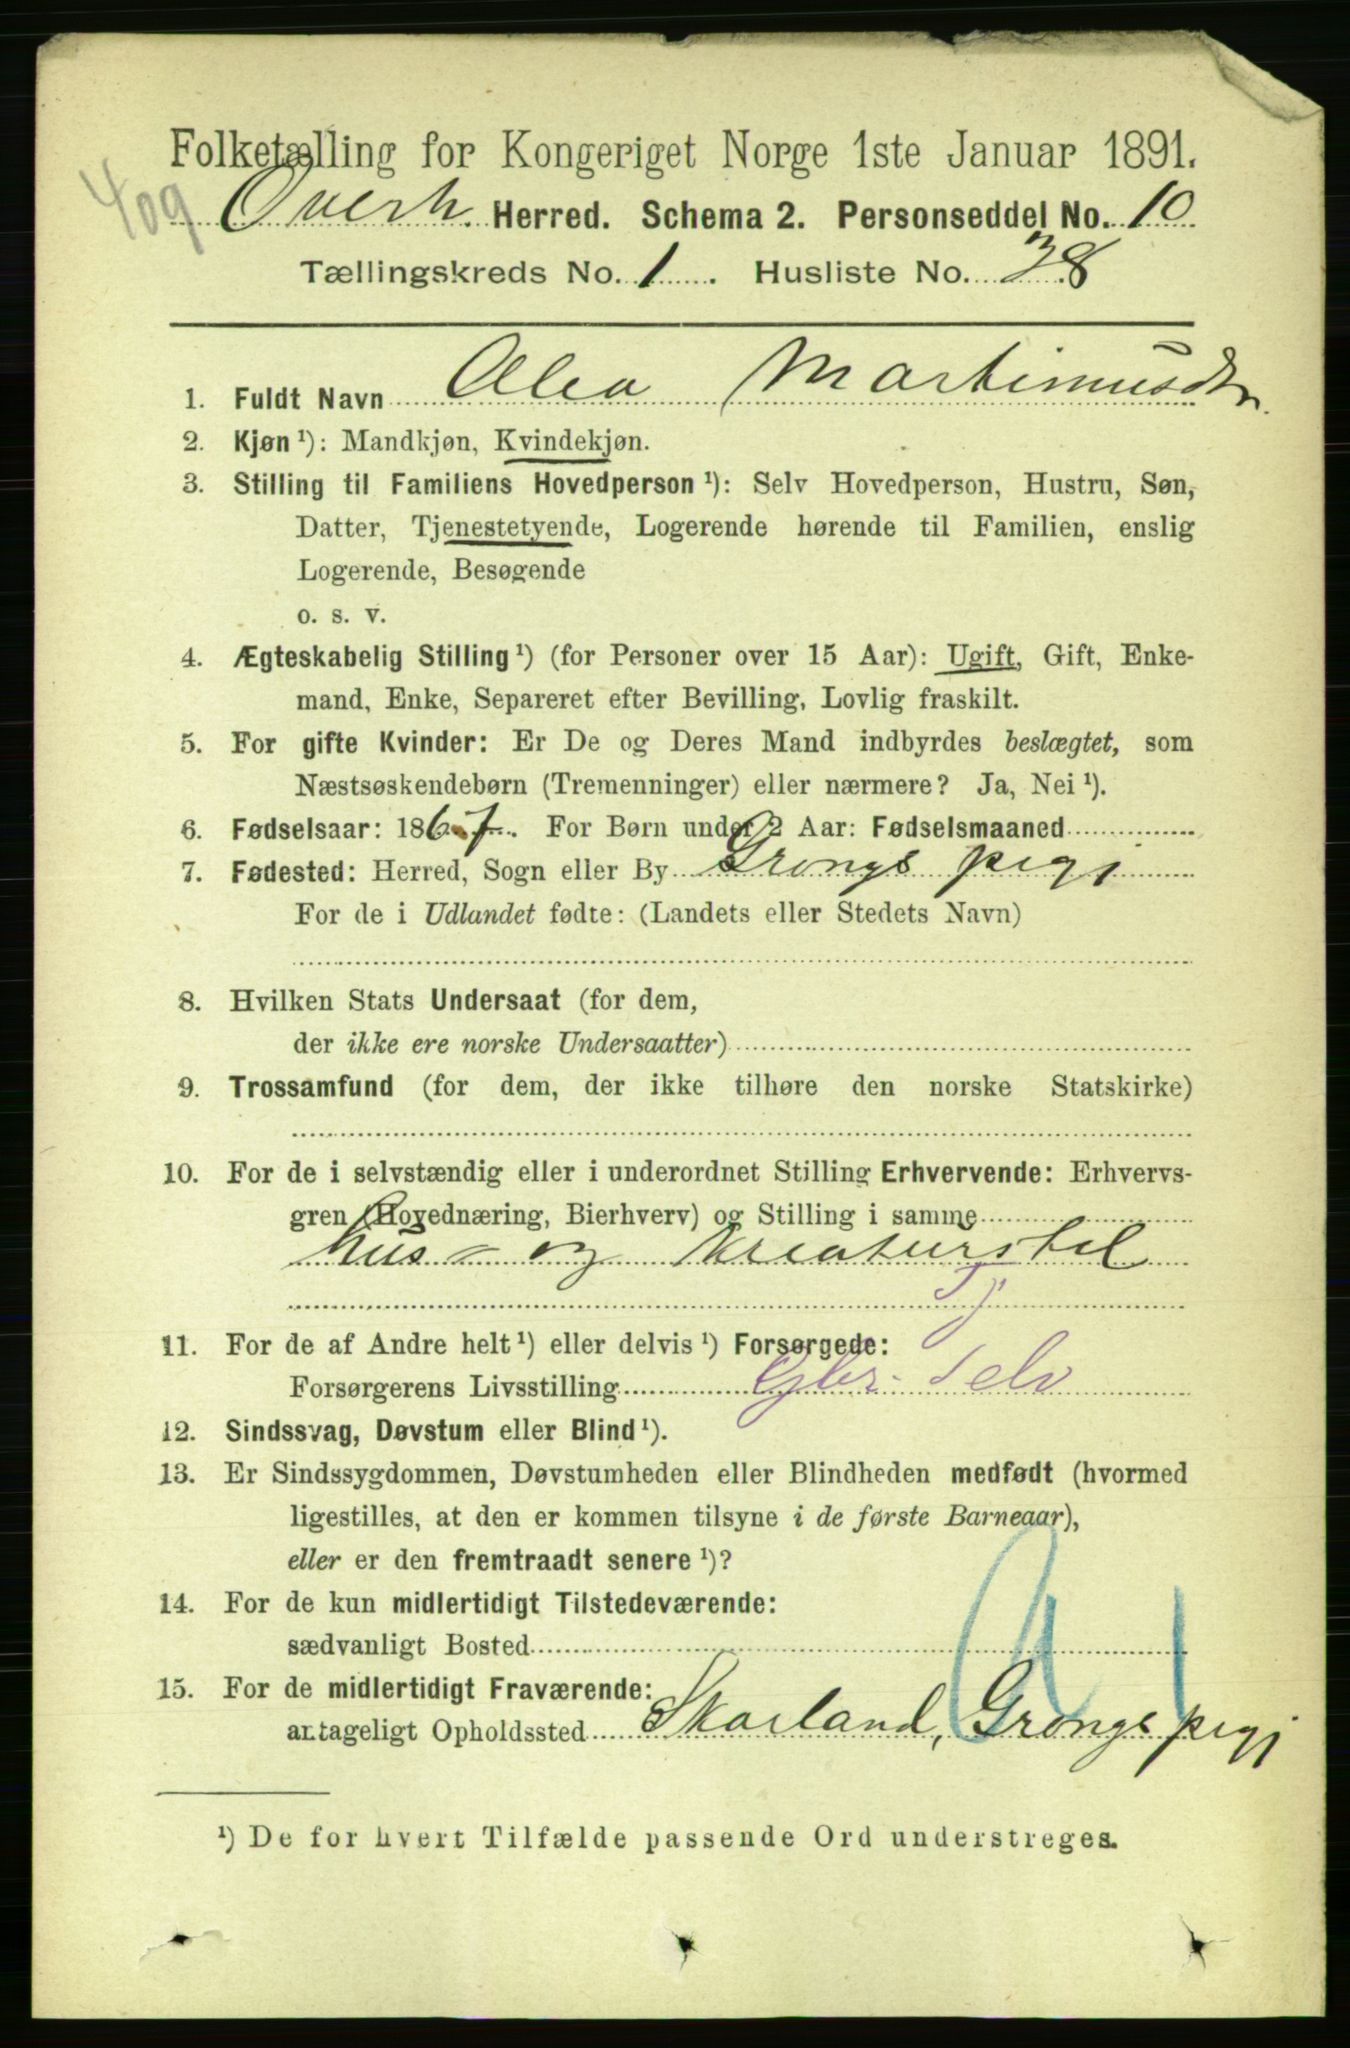 Folketælling for Kongeriget Norge 1ste Januar 1891.
409
Overh. Herred. Schema 2. Personseddel No. 10
Tællingskreds No. 1. Husliste No. 38
1. Fuldt Navn Olea Martinusdtr.
2. Kjøn ¹): Mandkjøn, Kvindekjøn.
3. Stilling til Familiens Hovedperson ¹): Selv Hovedperson, Hustru, Søn,
Datter, Tjenestetyende, Logerende hørende til Familien, enslig
Logerende, Besøgende
o. s. v.
4. Ægteskabelig Stilling ¹) (for Personer over 15 Aar): Ugift, Gift, Enke-
mand, Enke, Separeret efter Bevilling, Lovlig fraskilt.
5. For gifte Kvinder: Er De og Deres Mand indbyrdes beslægtet, som
Næstsøskendebørn (Tremenninger) eller nærmere? Ja, Nei ¹).
6. Fødselsaar: 1867. For Børn under 2 Aar: Fødselsmaaned
7. Fødested: Herred, Sogn eller By Grongs pgj
For de i Udlandet fødte: (Landets eller Stedets Navn)
8. Hvilken Stats Undersaat (for dem,
der ikke ere norske Undersaatter)
9. Trossamfund (for dem, der ikke tilhøre den norske Statskirke)
10. For de i selvstændig eller i underordnet Stilling Erhvervende: Erhvervs-
gren (Hovednæring, Bierhverv) og Stilling i samme
hus- og kreaturstel
Tj
11. For de af Andre helt ¹) eller delvis ¹) Forsørgede:
Forsørgerens Livsstilling Gbr. Selv
12. Sindssvag, Døvstum eller Blind ¹).
13. Er Sindssygdommen, Døvstumheden eller Blindheden medfødt (hvormed
ligestilles, at den er kommen tilsyne i de første Barneaar),
eller er den fremtraadt senere ¹)?
14. For de kun midlertidigt Tilstedeværende:
sædvanligt Bosted
15. For de midlertidigt Fraværende:
antageligt Opholdssted Skarland, Grongs pgj
¹) De for hvert Tilfælde passende Ord understreges.